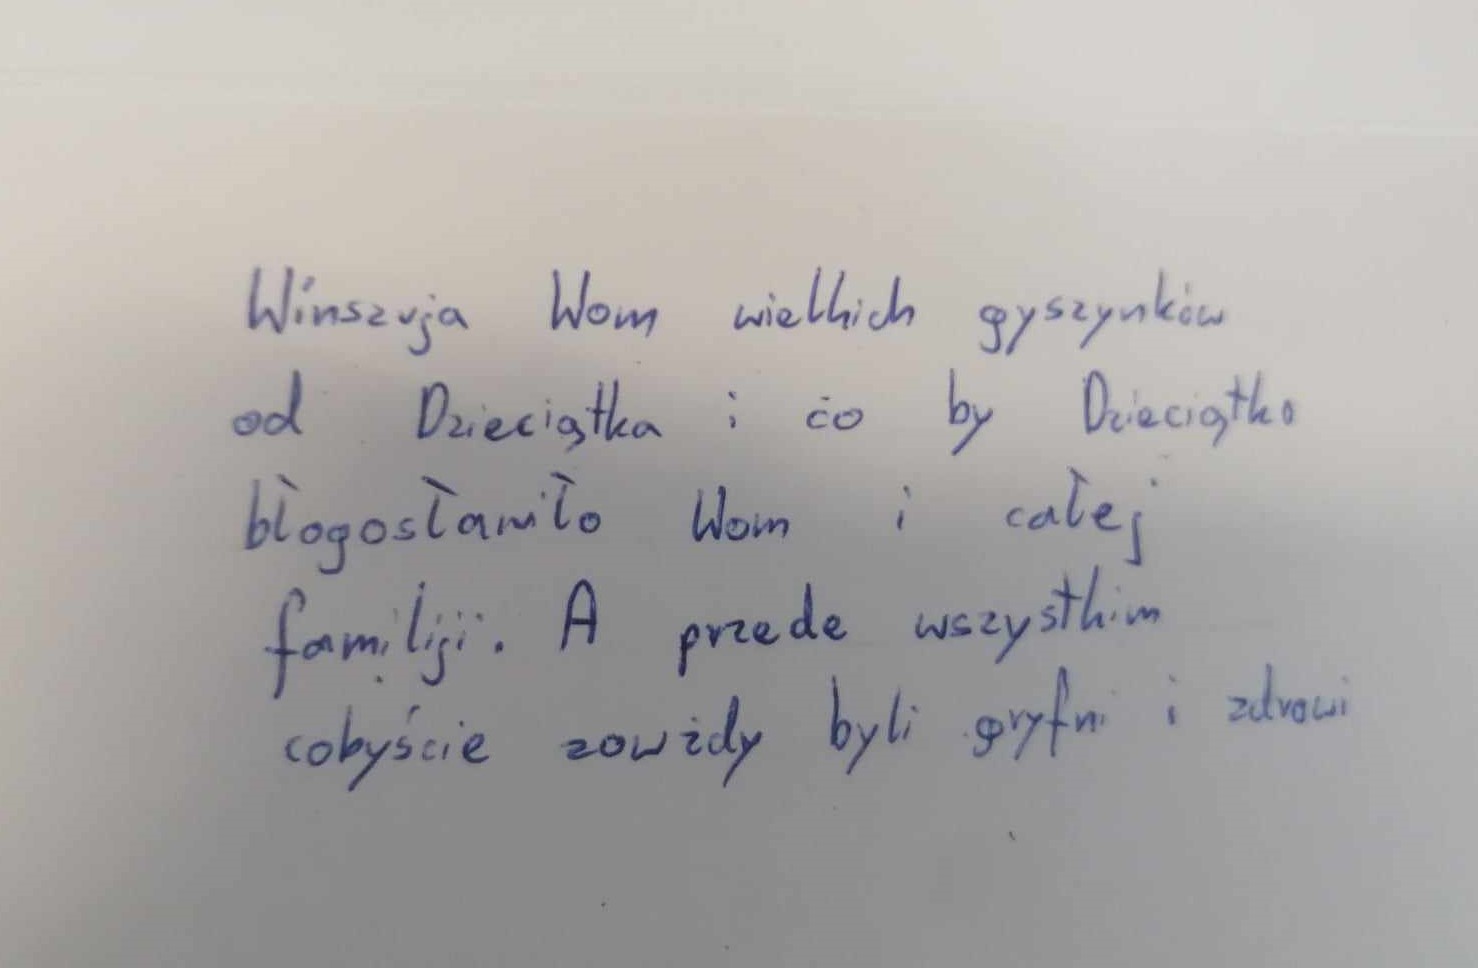 Winszuja Wom wielkich gyszynków
od Dzieciątka i co by Dzieciątko
błogosławiło Wom i całej
familiji. A przede wszystkim
cobyście zowżdy byli gryfni i zdrowi